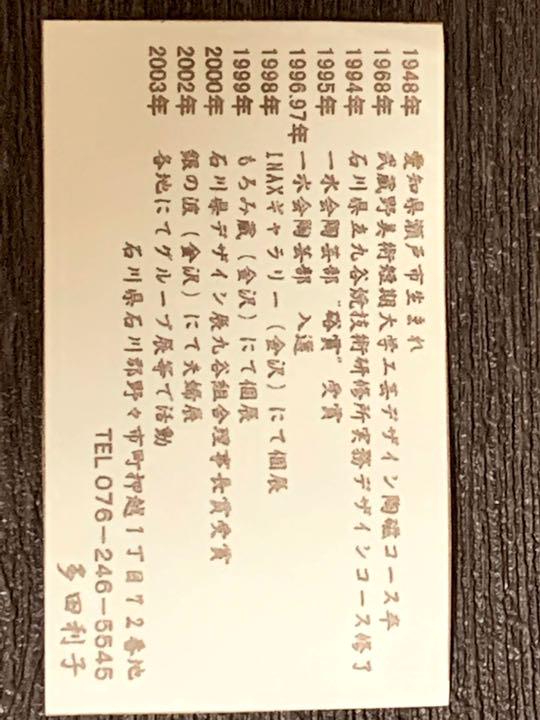 1948年 愛知県瀬戸市生まれ
1968年 武蔵野美術短期大学工芸デザイン陶磁コース卒
1994年 石川県立九谷焼技術研修所実務デザインコース修了
1995年 一水会陶芸部 "裕賞" 受賞
1996.97年 一水会陶芸部 入選
1998年 INAXギャラリー（金沢）にて個展
1999年 もろみ蔵（金沢）にて個展
2000年 石川県デザイン展九谷組合理事長賞受賞
2002年 銀の波（金沢）にて夫婦展
2003年 各地にてグループ展等で活動
石川県石川郡野々市町押越1丁目72番地
TEL 076-246-5545
多田利子